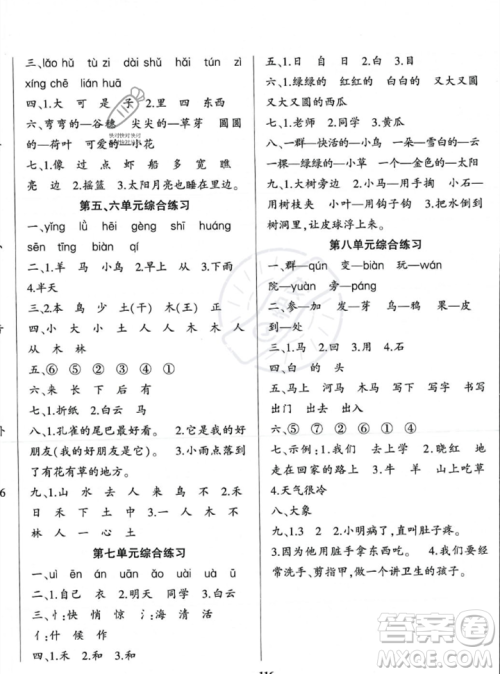 三、lǎo hǔ　tù zi　dà shù　hǎi zi　tún　zì
xíng chē　lián huā
四、1.大　可　是　子　2.里　四　东西
六、弯弯的—谷穗　尖尖的—草芽　圆圆
的—荷叶　可爱的—小花
七、1.像　过　点　虾　船　多　宽　瞧
亮　边　2.摇篮　3.太阳月亮也在上面过。
第五、六单元综合练习
一、yǐng　lǜ　hēi　shì　huáng
sēn　tīng　bìng　guà
二、1.羊　马　小鸟　2.早上　3.从来
4.半天
三、2.本　鸟　土(干)　木(王)　了　目
四、大　小　土　人　人木　木　人
从　木　林
五、⑥　⑤　②　③　④　①
六、来　长　下
七、1.折纸　2.白云　马
八、1.孔雀的尾巴最好看。　我是他的好
朋友(他是我的好朋友)。　3.小雨点落到了
有花有草的地方。
九、1.山　水　去　人　来　鸟　2.禾
日　禾　土　中　3.人　木　不
林　人　一　心　土
第七单元综合练习
一、uì　ēn　án　uān　ǎo　āo　āi
二、1.自己　衣　2.明天　同学　3.白云
三、忄:快　悄　惊　氵:海　清　活
亻:作　什　候　们　住
四、1.禾　日　2.和　3.和
五、1.日　2.白　3.目
六、绿绿的　红红的　白白的　又大又圆
又大又圆的西瓜
七、1.老师　2.同学　3.日月
八、一群—快活的—小鸟　一朵—白白的—云
一棵—绿绿的—大树　一只—可爱的—小猫
九、1.大树旁边　2.小鸭子　3.①用
树枝夹　②用钩子钩　③把水倒到
树洞里,让皮球浮上来。
第八单元综合练习
一、群—qún　变—biàn　玩—wán
院—yuàn　旁—páng
二、参—加　发—芽　乌—鸦　果—皮
到—处
三、1.马　2.回　3.用　4.石
四、白　的　头
五、马上　河马　马车　写作　写字　书写
出门　出去　出土
六、⑤④①③②⑥
七、示例:1.我们　去上学　2.晓红　走
在回家的路上　3.我　和妈妈　在家里
4.天气很冷
八、大象
九、1.3　2.小明病了,直叫肚子疼。
3.因为他用脏手拿东西吃。　4.我们要经
常洗手、剪指甲,做一个讲卫生的孩子。
116
答案圈
MXQE.COM